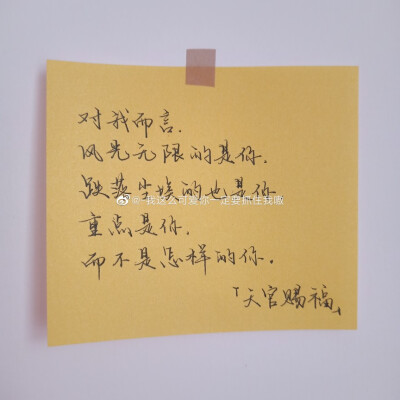 对我而言.
风光无限的是你.
跌落尘埃的也是你
@我这么可爱你一定要抓住我嘴
重点是你.
而不是怎样的你.
「天官赐福」